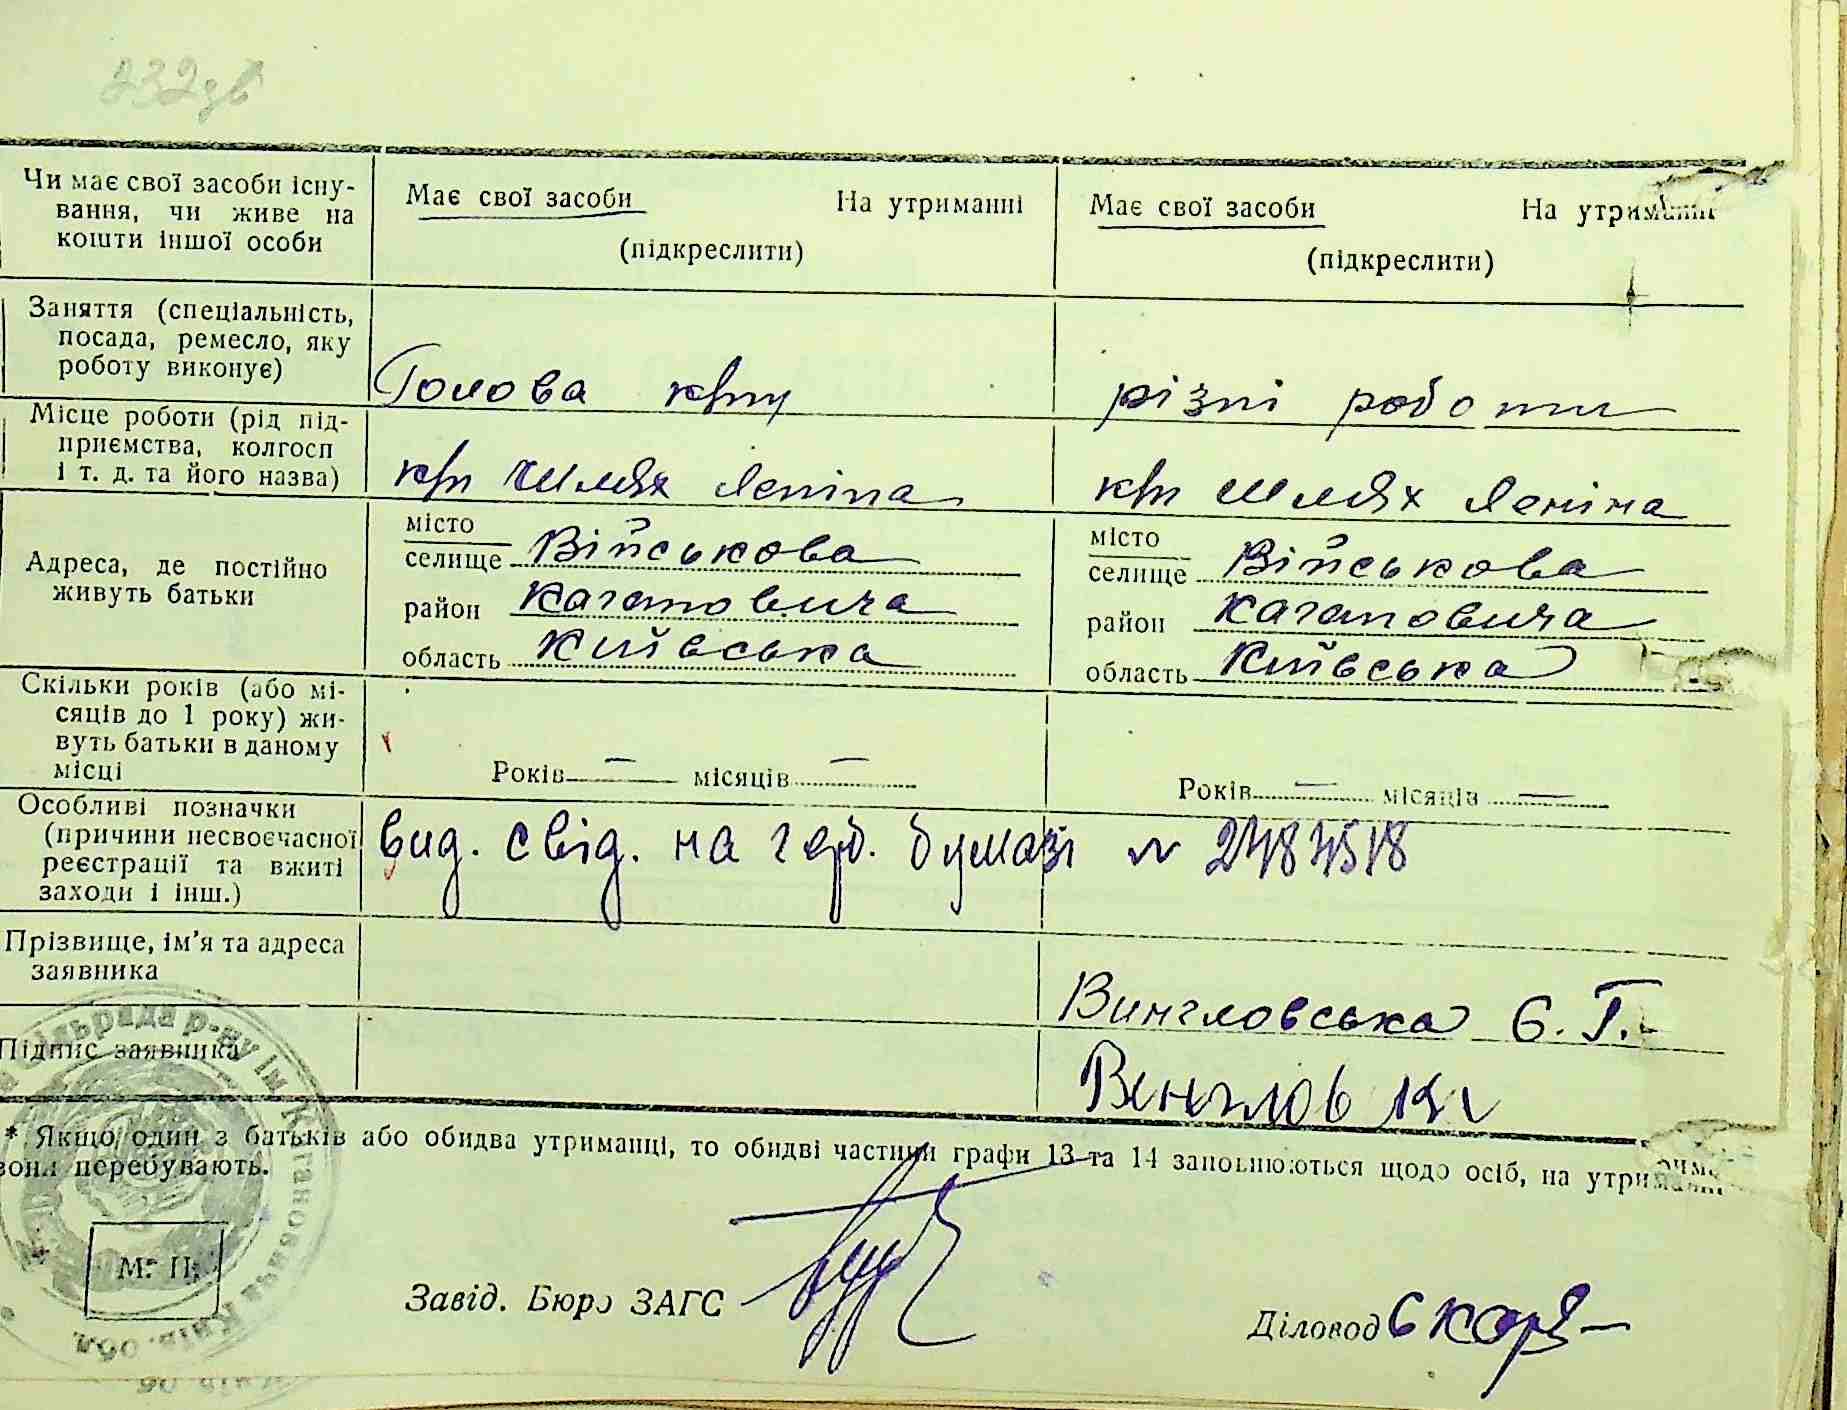 232зв
Чи має свої засоби існу-
вання, чи живе на
кошти іншої особи
Має свої засоби На утриманні
(підкреслити)
Має свої засоби На утриманні
(підкреслити)
Заняття (спеціальність,
посада, ремесло, яку
роботу виконує)
Голова к/гпу
різні роботи
Місце роботи (рід під-
приємства, колгосп
і т. д. та його назва)
к/гп Шлях Леніна
к/гп Шлях Леніна
Адреса, де постійно
живуть батьки
місто
селище Військова
район Кагановича
область Київська
місто
селище Військова
район Кагановича
область Київська
Скільки років (або мі-
сяців до 1 року) жи-
вуть батьки в даному
місці
Років — місяців —
Років — місяців —
Особливі позначки
(причини несвоєчасної
реєстрації та вжиті
заходи і інш.)
вид. свід. на герб. бумазі №
Прізвище, ім'я та адреса
заявника
Вингловська Є. Г.
Підпис заявника
* Якщо один з батьків або обидва утриманці, то обидві частини графи 13 та 14 заповнюються щодо осіб, на утриманні
вони перебувають.
М. П.
Завід. Бюро ЗАГС
Діловод
сільрада р-ну ім. Кагановича Київ. обл.